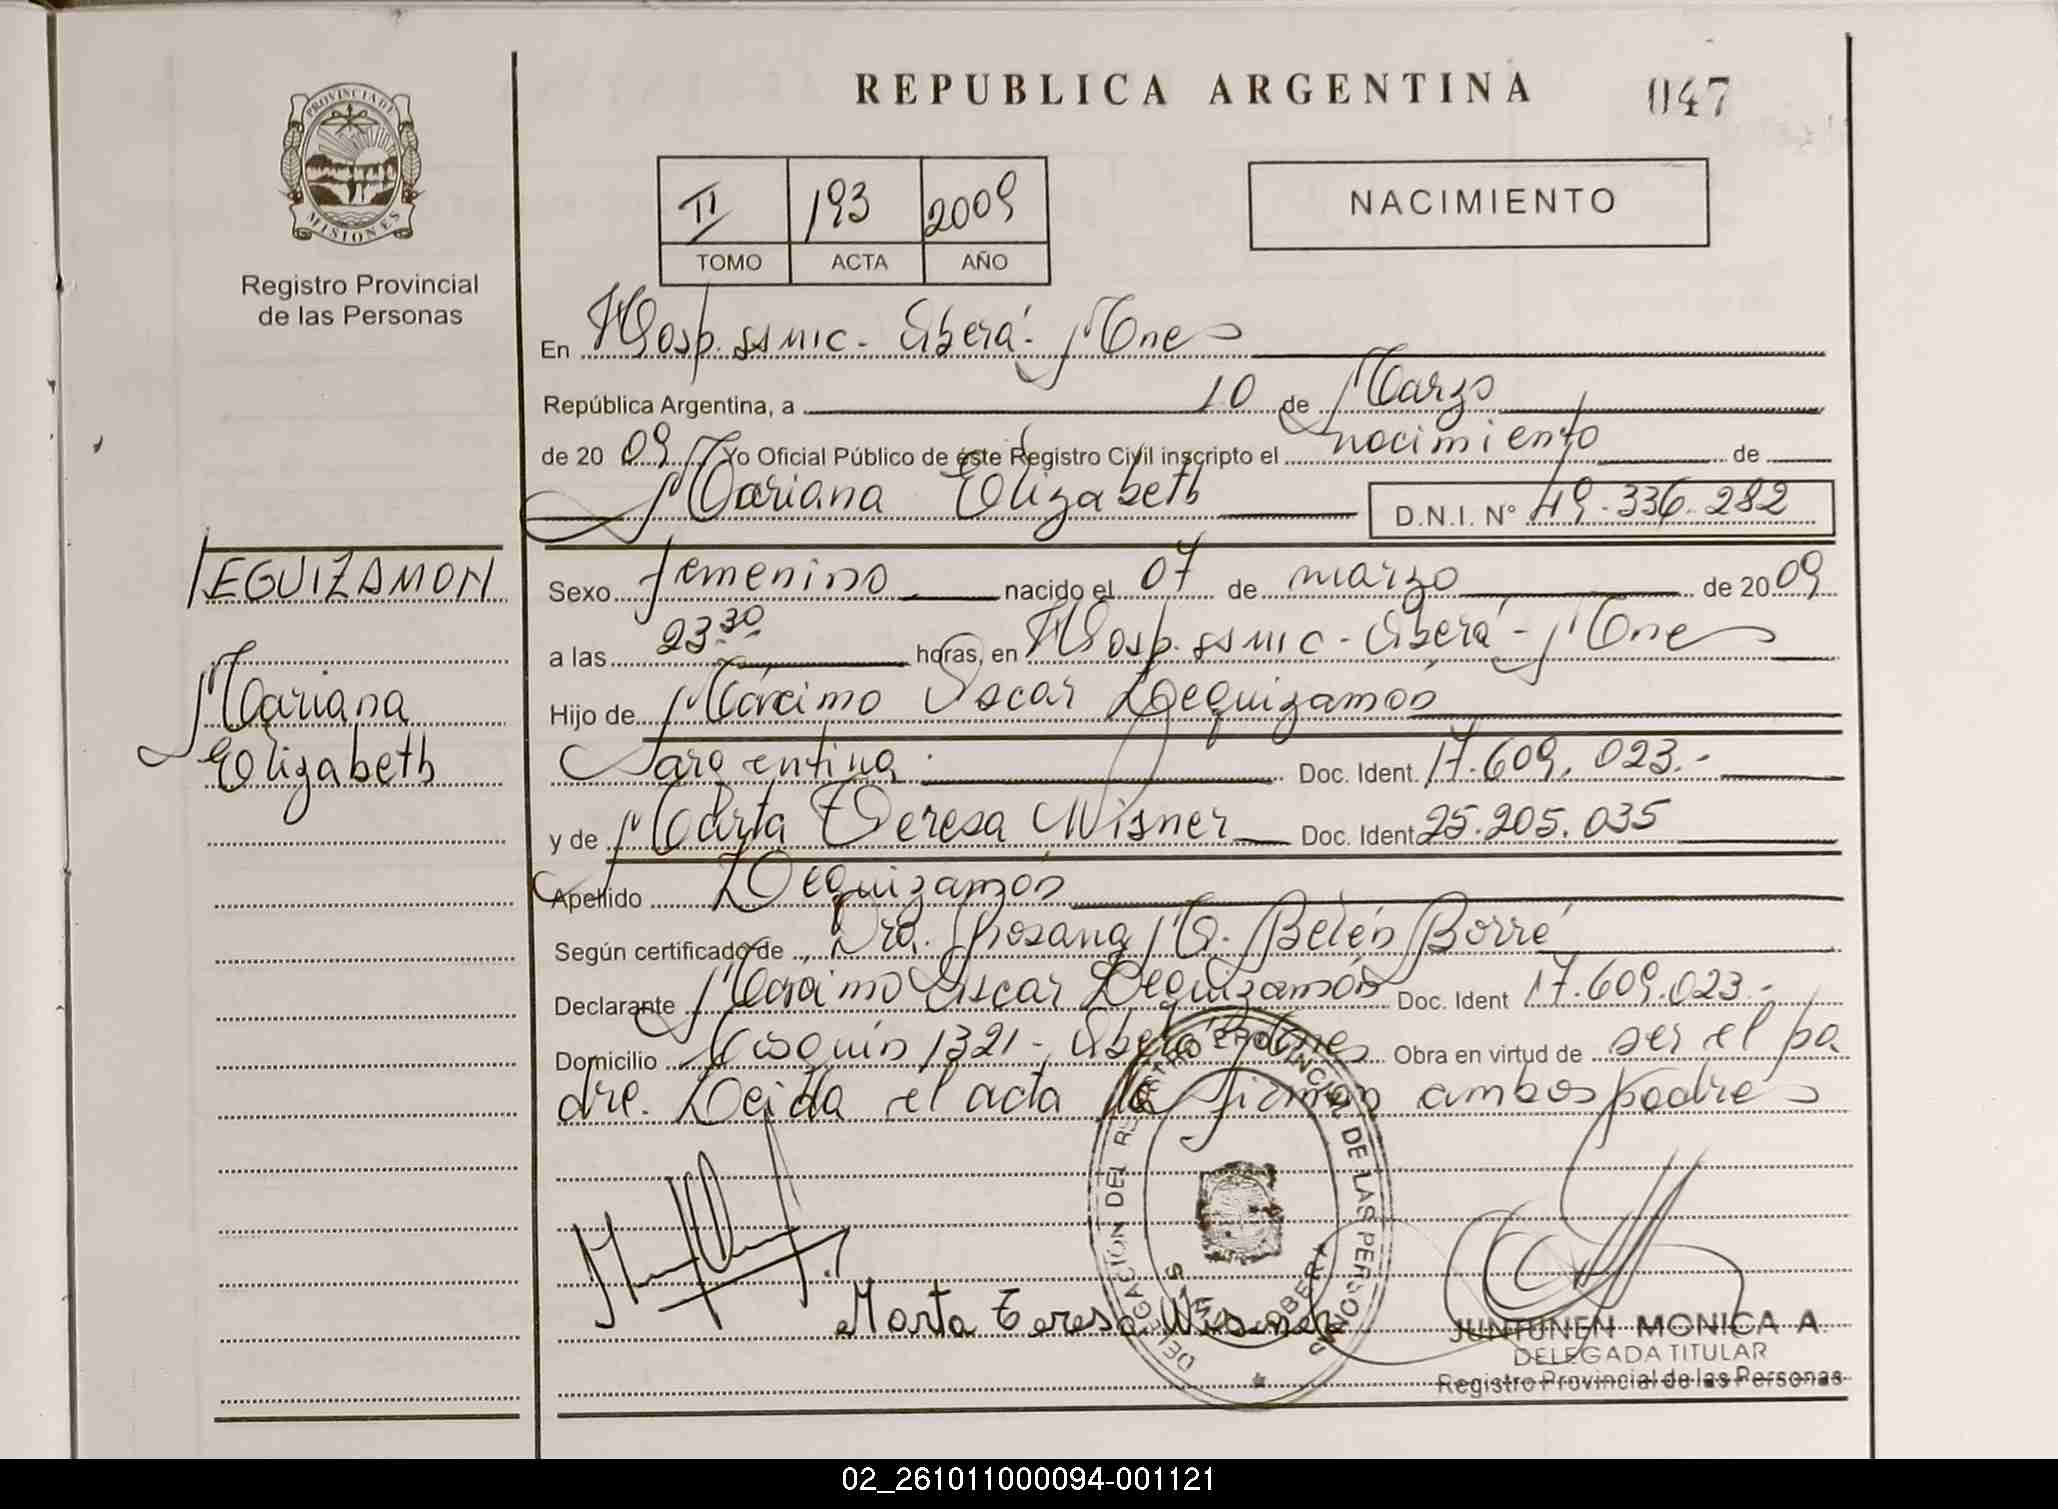 REPUBLICA ARGENTINA
047
PROVINCIA DE
MISIONES
Registro Provincial
de las Personas
II 193 2009
TOMO ACTA AÑO
NACIMIENTO
En Hosp. SAMIC - Oberá - Mnes
República Argentina, a 10 de Marzo
de 2009 Yo Oficial Público de éste Registro Civil inscripto el nacimiento de
Mariana Elizabeth D.N.I. N° 49.336.282
LEGUIZAMON
Mariana
Elizabeth
Sexo femenino nacido el 07 de marzo de 2009
a las 23.30 horas, en Hosp. SAMIC - Oberá - Mnes
Hijo de Máximo Oscar Leguizamón
argentina Doc. Ident. 17.609.023.-
y de Marta Teresa Wisner Doc. Ident. 25.205.035
Apellido Leguizamón
Según certificado de Dra. Rosana M. Belén Borré
Declarante Máximo Oscar Leguizamón Doc. Ident 17.609.023.-
Domicilio Cosquín 1321 - Oberá Mnes Obra en virtud de ser el pa
dre. Leida el acta la firman ambos padres
DELEGACIÓN DEL REGISTRO PROVINCIAL DE LAS PERSONAS
OBERA
Marta Teresa Wisner
JUNTUNEN MONICA A.
DELEGADA TITULAR
Registro Provincial de las Personas
02_261011000094-001121